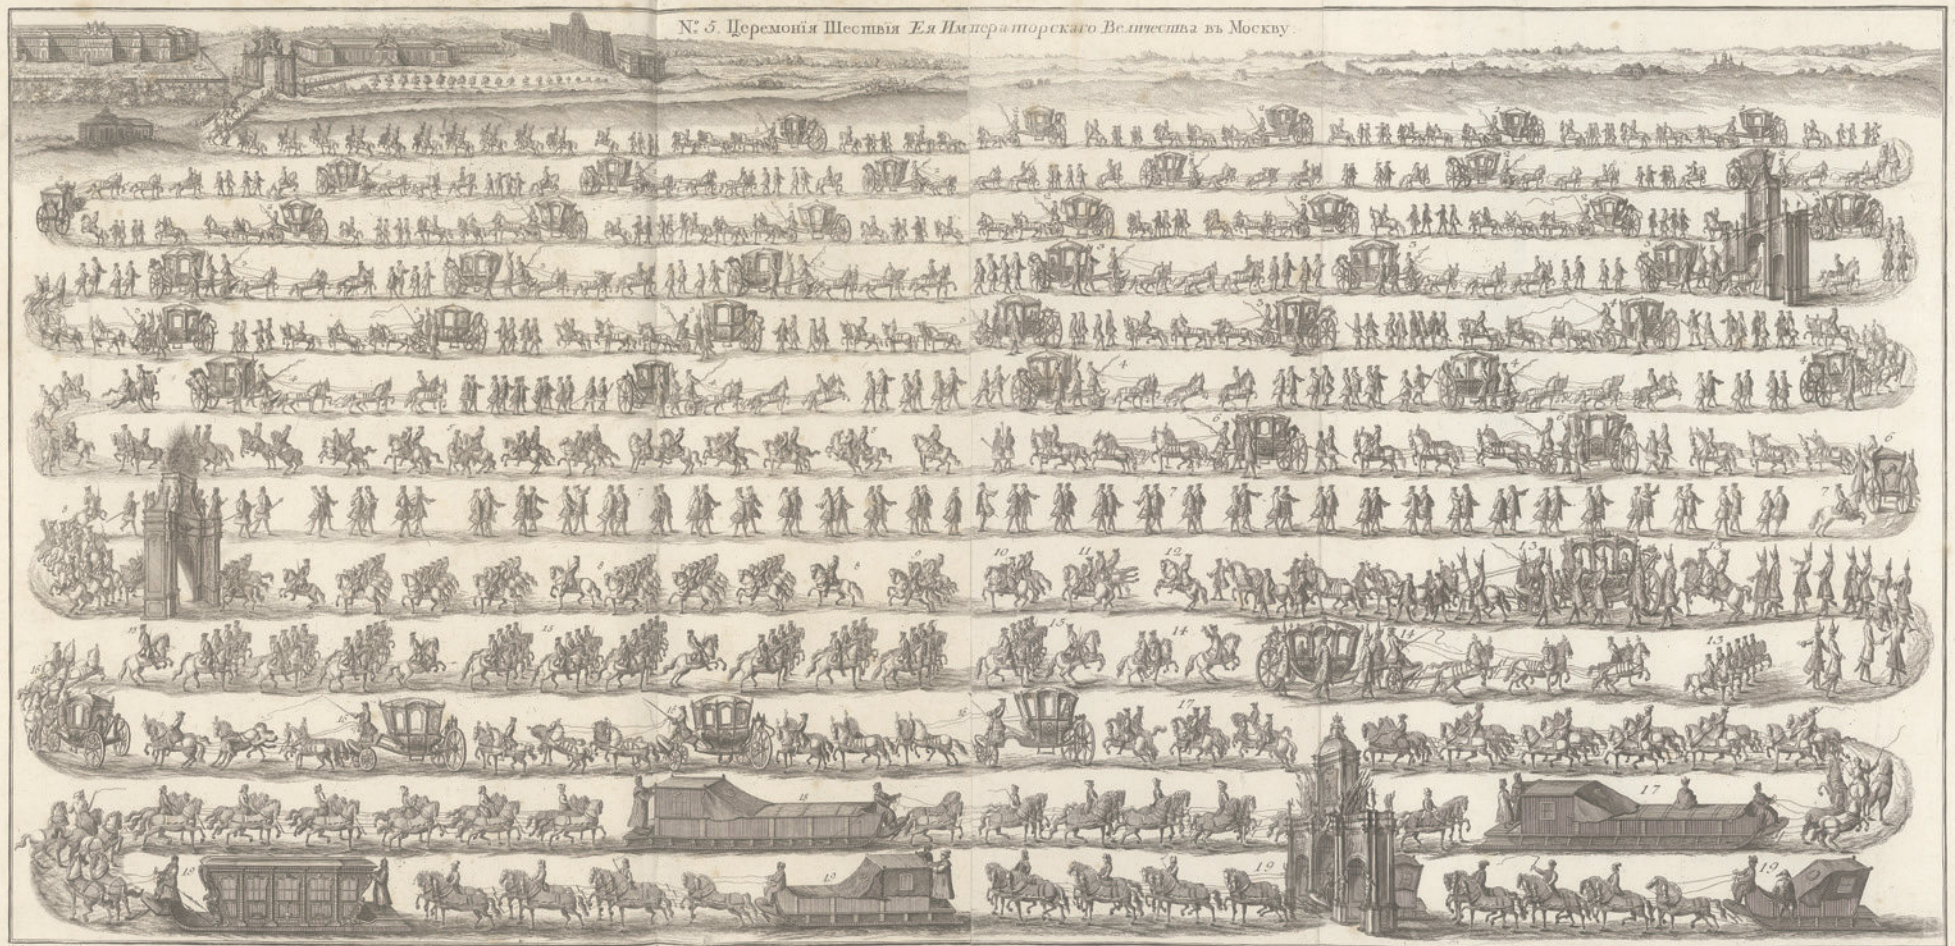 № 5. Церемонїя Шествїя Ея Императорскаго Величества въ Москву.
2 2 2 2
2 2
3 3 3
3 4
4 4 4
5 6 6 6
7 7 7
8 8 8 9 10 11 12 13 13
15 15 15 14 14 13
16 16 16 16 17
18 17
19 19 19 19